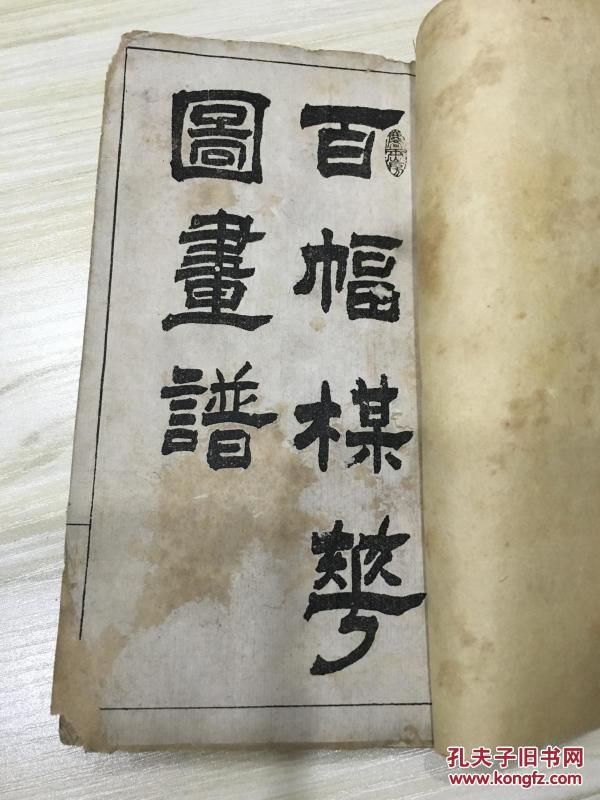 百幅楳華
圖畫譜
孔夫子旧书网
www.kongfz.com